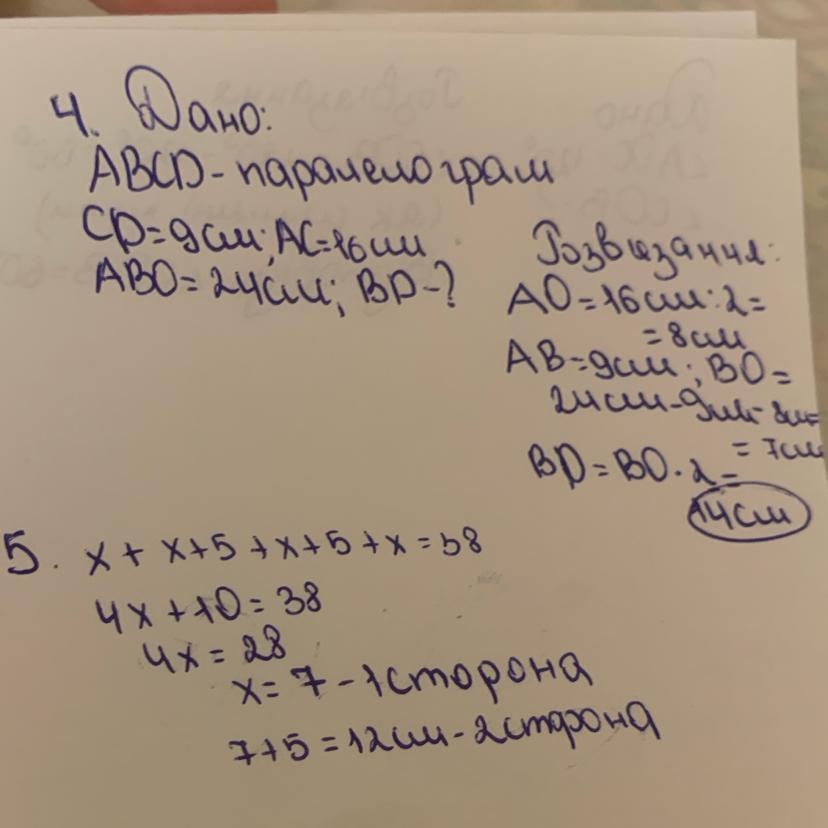 4. Дано:
ABCD - паралелограм
CD=9см; AC=16см
ABO=24см; BD-?
Розвязання:
AO=16см:2=
=8см
AB=9см; BO=
24см-9см-8см=
=7см
BD=BO·2=
14см
5. x+x+5+x+5+x=38
4x+10=38
4x=28
x=7-1сторона
7+5=12см-2сторона